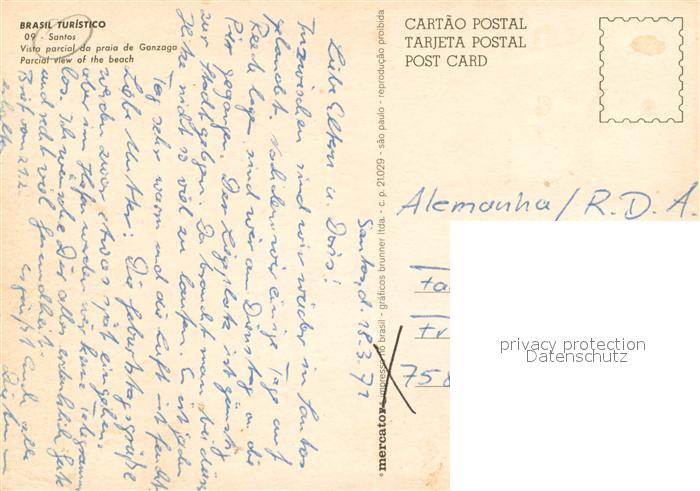 BRASIL TURÍSTICO
09 - Santos
Vista parcial da praia de Gonzaga
Parcial view of the beach
CARTÃO POSTAL
TARJETA POSTAL
POST CARD
mercator impresso no brasil - gráficos brunner ltda. - c. p. 21.029 - são paulo - reprodução proibida
Santos, d. 18.3.71
Liebe Eltern u. Doris!
Inzwischen sind wir wieder in Santos
gelandet. Nachdem wir einige Tage auf
Reede lagen, sind wir am Dienstag an die
Pier gegangen. Der Liegeplatz ist günstig
zur Stadt gelegen. Da braucht man bei dieser
Hitze nicht so viel zu laufen. Es ist jeden
Tag sehr warm und die Luft ist feucht.
Liebe Mutter! Die Geburtstagsgrüße
werden zwar etwas spät eingehen,
aber im Hafen werden wir keine Telegramme
los. Ich wünsche Dir alles erdenklich Gute
und recht viel Gesundheit.
Brief vom 21.2.
erhalten
es grüßt Euch alle
Alemanha / R.D.A.
758
privacy protection
Datenschutz